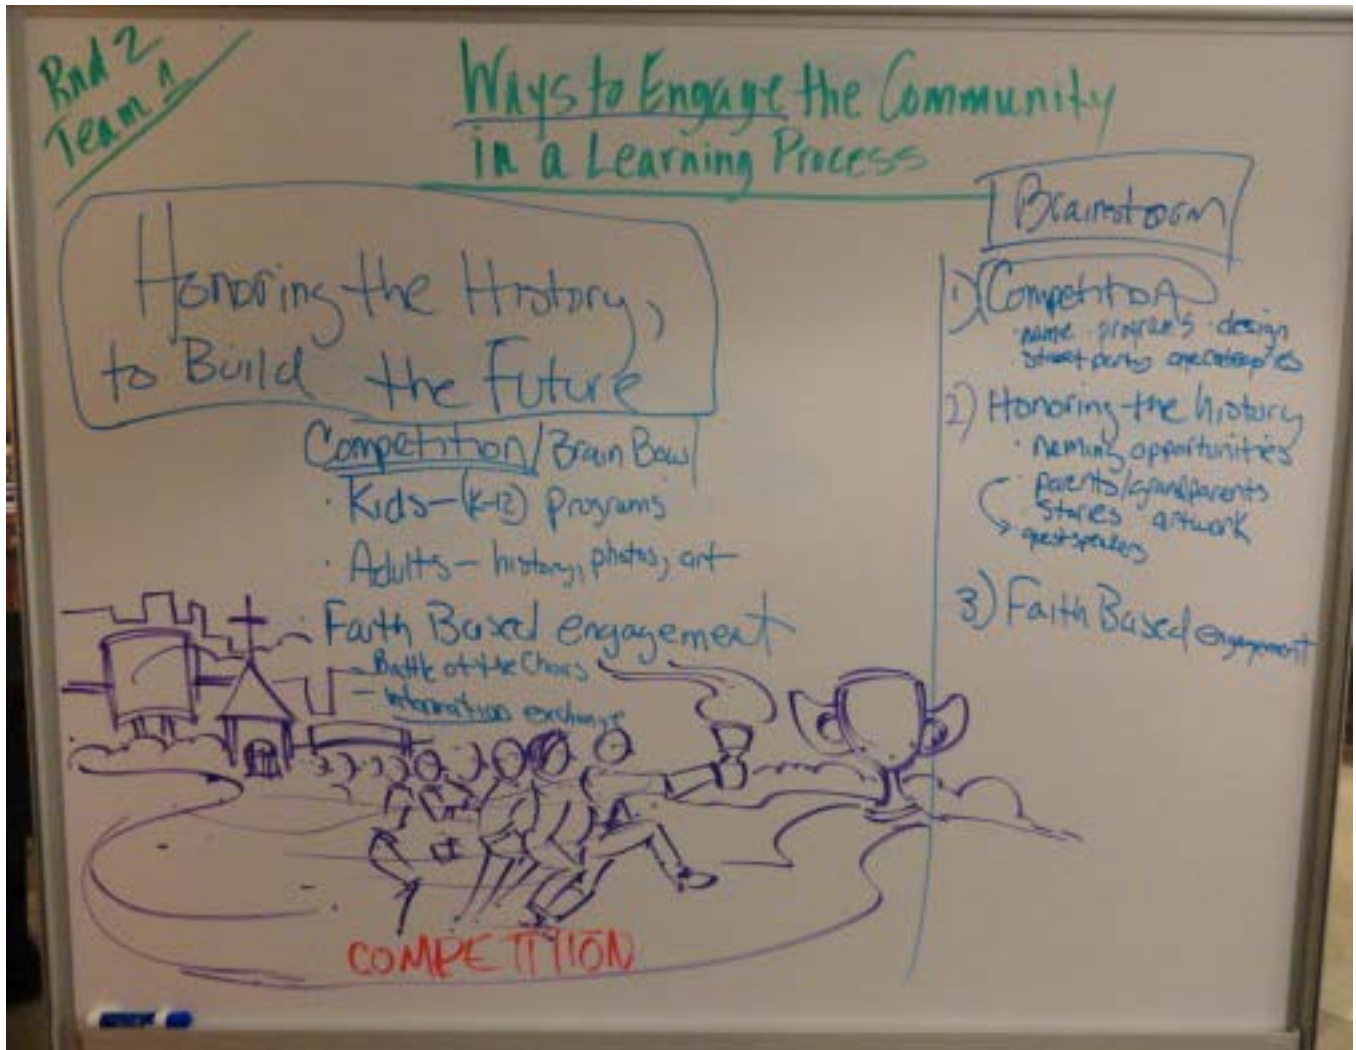 Rnd 2
Team 1
Ways to Engage the Community
in a Learning Process
Honoring the History,
to Build the Future
Competition/Brain Bowl
· Kids - (K-12) programs
· Adults - history, photos, art
· Faith Based engagement
- Battle of the Choirs
- information exchange
COMPETITION
Brainstorm
1) Competition
· name · programs · design
street party
2) Honoring the history
· naming opportunities
· parents/grandparents
stories artwork
guest speakers
3) Faith Based engagement